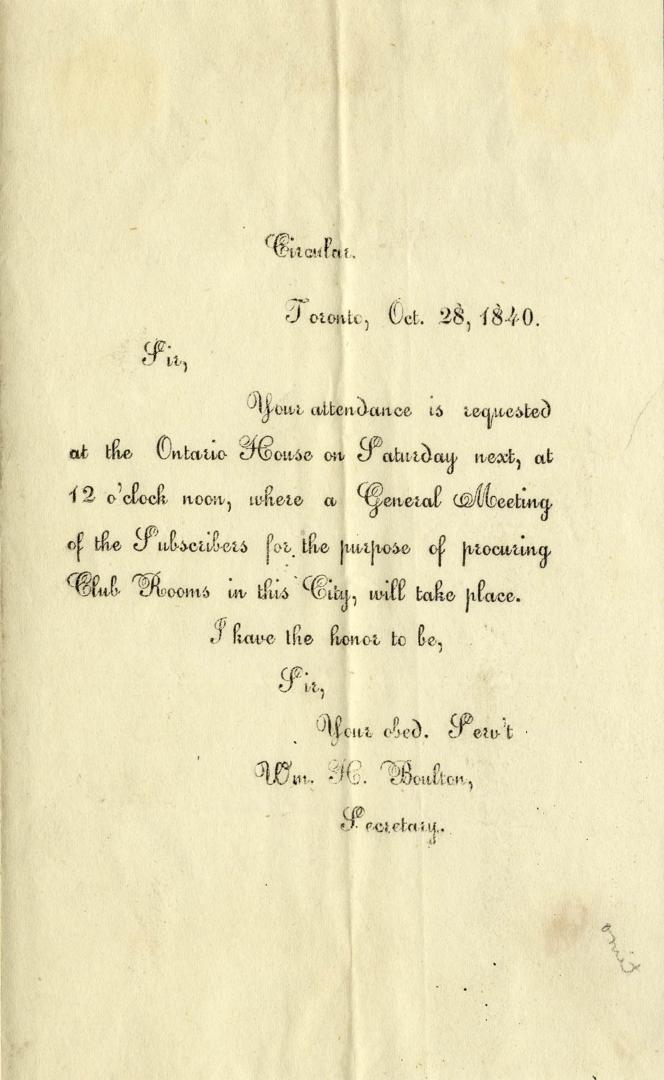 Circular.
Toronto, Oct. 28, 1840.
Sir,
Your attendance is requested
at the Ontario House on Saturday next, at
12 o'clock noon, where a General Meeting
of the Subscribers for the purpose of procuring
Club Rooms in this City, will take place.
I have the honor to be,
Sir,
Your obed. Serv't
Wm. H. Boulton,
Secretary.